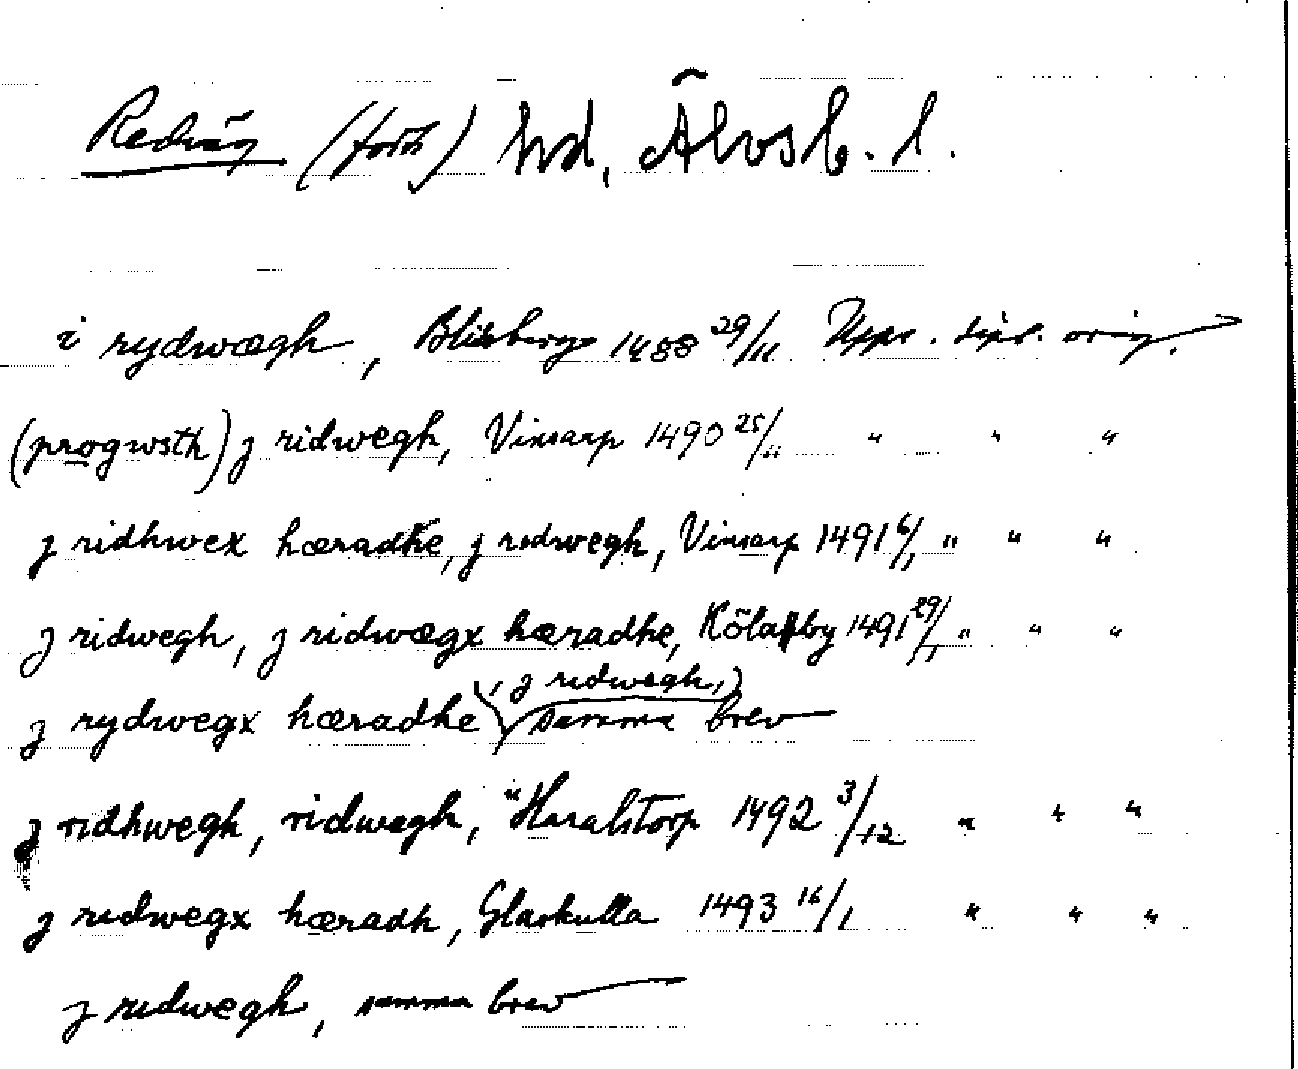 Redväg (forts) hd, Älvsb. l.
i rydwægh, Blidsberg 1488 29/11 Upps. dipl. orig.
(progwsth) j ridwegh, Vinsarp 1490 25/11 " " "
j ridhwex hæradhe, j redwegh, Vinsarp 1491 6/1 " " "
j ridwegh, j ridwægx hæradhe, Kölaby 1491 29/1 " " "
(, j redwegh,)
j rydwegx hæradhe samma brev
j ridhwegh, ridwægh, "Haralstorp 1492 3/12 " " "
j redwegx hæradh, Glaskulla 1493 16/1 " " "
j ridwegh, samma brev